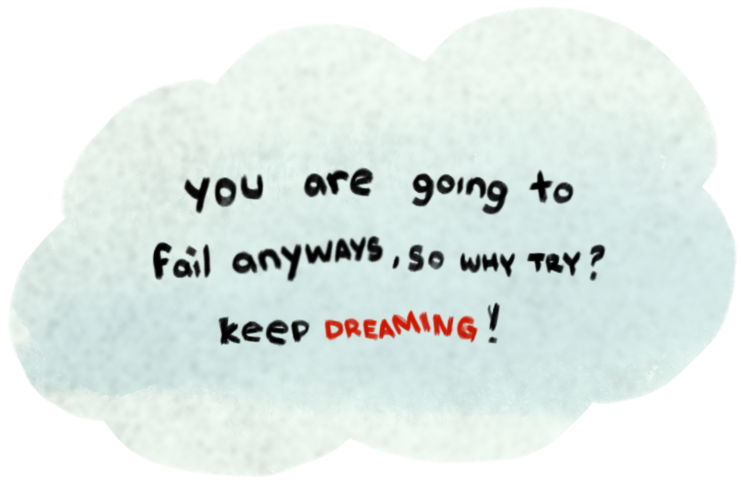 you are going to
fail anyWAYS, so WHY TRY?
keep DREAMING!